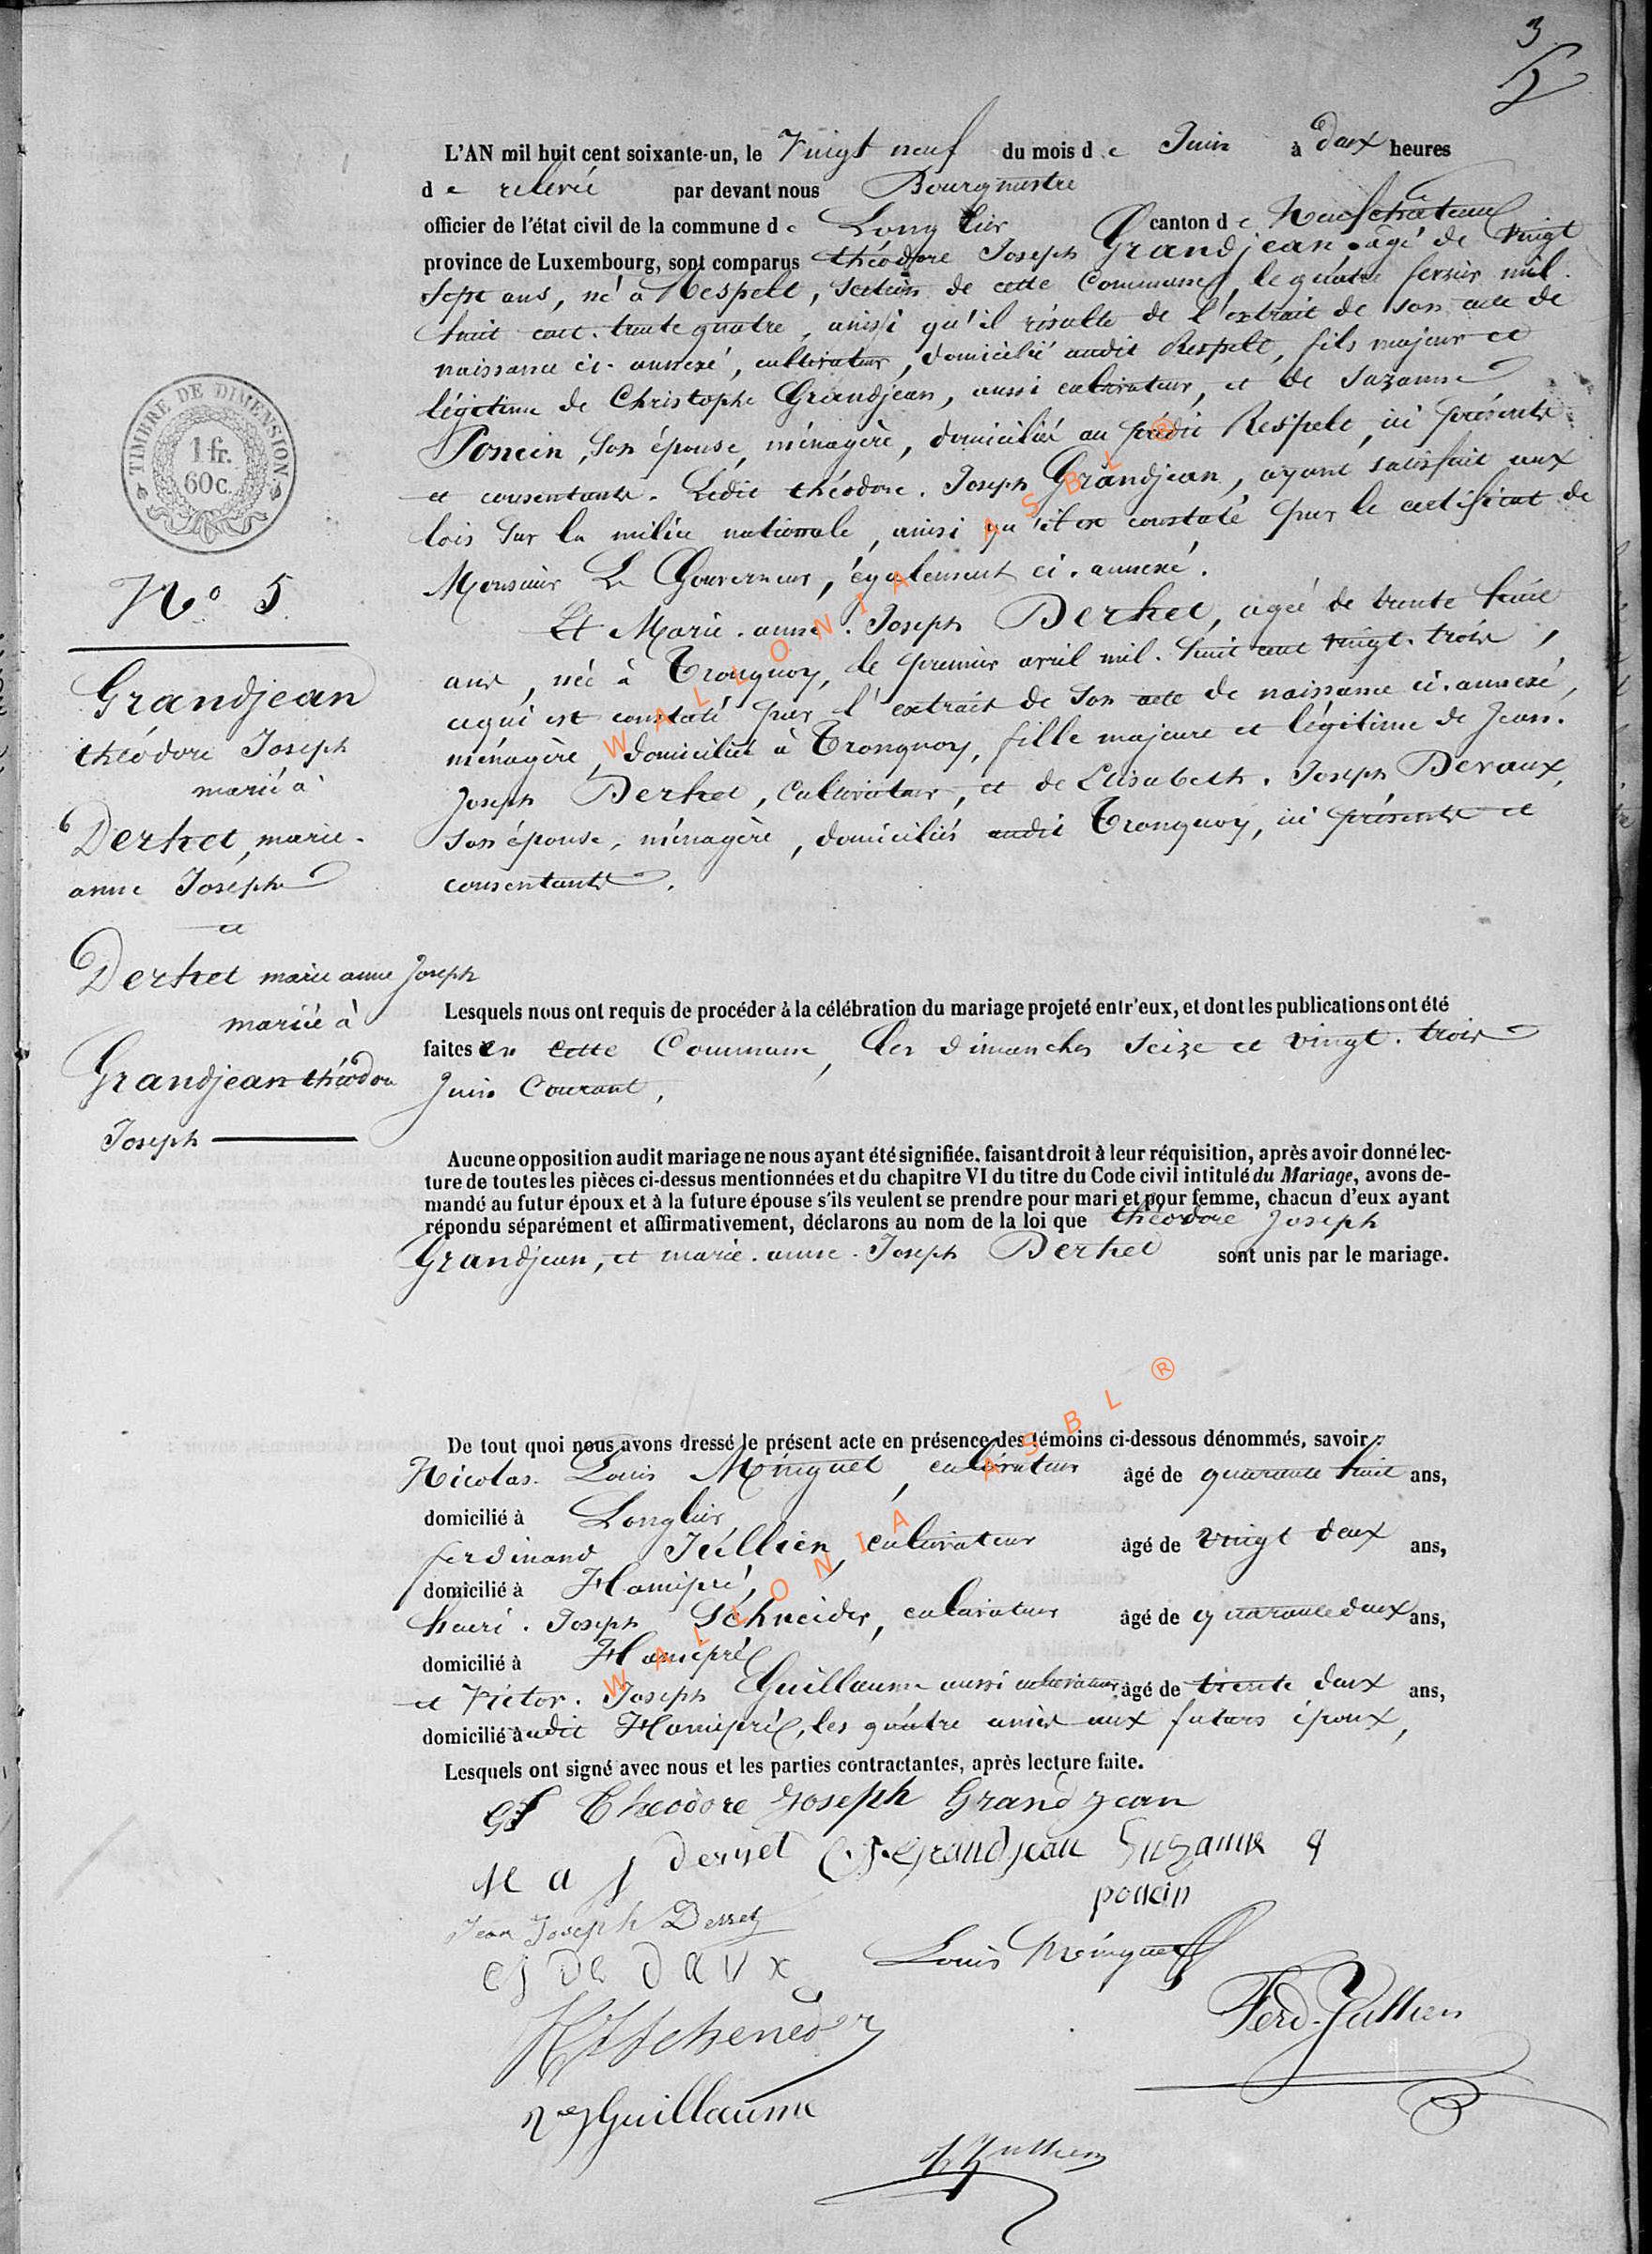 3
L'AN mil huit cent soixante-un, le Vingt neuf du mois de Juin à deux heures
de relevée par devant nous Bourgmestre
officier de l'état civil de la commune de Longlier canton de Neufchâteau
province de Luxembourg, sont comparus théodore Joseph Grandjean, agé de vingt
sept ans, né à Respelt, section de cette Commune, le quatre fevrier mil
huit cent trente quatre, ainsi qu'il résulte de l'extrait de son acte de
naissance ci-annexé, cultivateur, domicilié audit Respelt, fils majeur et
légitime de Christophe Grandjean, aussi cultivateur, et de Suzanne
Poncin, son épouse, ménagère, domiciliés au prédit Respelt, ici présents
et consentants. Ledit théodore. Joseph Grandjean, ayant satisfait aux
lois sur la milice nationale, ainsi qu'il est constaté par le certificat de
Monsieur Le Gouverneur, également ci-annexé.
Et Marie-anne. Joseph Derhet, agée de trente huit
ans, née à Tronquoy, le premier avril mil-huit cent vingt-trois,
ce qui est constaté par l'extrait de son acte de naissance ci-annexé,
ménagère, domiciliée à Tronquoy, fille majeure et légitime de Jean-
Joseph Derhet, Cultivateur, et de Elisabeth. Joseph Devaux,
son épouse, ménagère, domiciliés audit Tronquoy, ici présents et
consentants.
TIMBRE DE DIMENSION
1 fr.
60 c.
N° 5.
Grandjean
théodore Joseph
marié à
Derhet, marie-
anne Joseph
et
Derhet marie anne Joseph
mariée à
Grandjean théodore
Joseph
Lesquels nous ont requis de procéder à la célébration du mariage projeté entr'eux, et dont les publications ont été
faites en cette Commune, les dimanches seize et vingt-trois
Juin Courant,
Aucune opposition audit mariage ne nous ayant été signifiée, faisant droit à leur réquisition, après avoir donné lec-
ture de toutes les pièces ci-dessus mentionnées et du chapitre VI du titre du Code civil intitulé du Mariage, avons de-
mandé au futur époux et à la future épouse s'ils veulent se prendre pour mari et pour femme, chacun d'eux ayant
répondu séparément et affirmativement, déclarons au nom de la loi que théodore Joseph
Grandjean, et marie-anne-Joseph Derhet sont unis par le mariage.
De tout quoi nous avons dressé le présent acte en présence des témoins ci-dessous dénommés, savoir :
Nicolas-Louis Minguet, cultivateur âgé de quarante huit ans,
domicilié à Longlier
ferdinand Jullien, cultivateur âgé de vingt deux ans,
domicilié à Hamipré,
henri-Joseph Schneider, cultivateur âgé de quarante deux ans,
domicilié à Hamipré
et Victor-Joseph Guillaume aussi cultivateur, âgé de trente deux ans,
domicilié audit Hamipré, les quatre amis aux futurs époux,
Lesquels ont signé avec nous et les parties contractantes, après lecture faite.
Theodore Joseph Grandjean
M a j derhet C. J. Grandjean Suzanne
poncin
Jean Joseph Derhet
e j De Vaux Louis Minguet
Ferd. Jullien
HJScheneder
Guillaume
Jullien
WALLONIA ASBL ®
WALLONIA ASBL ®